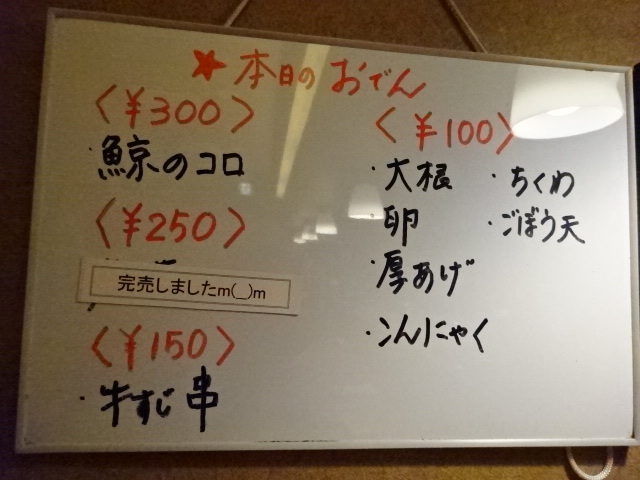 ★本日のおでん
〈¥300〉
・鯨のコロ
〈¥250〉
完売しましたm(__)m
〈¥150〉
・牛すじ串
〈¥100〉
・大根 ・ちくわ
卵 ・ごぼう天
・厚あげ
・こんにゃく